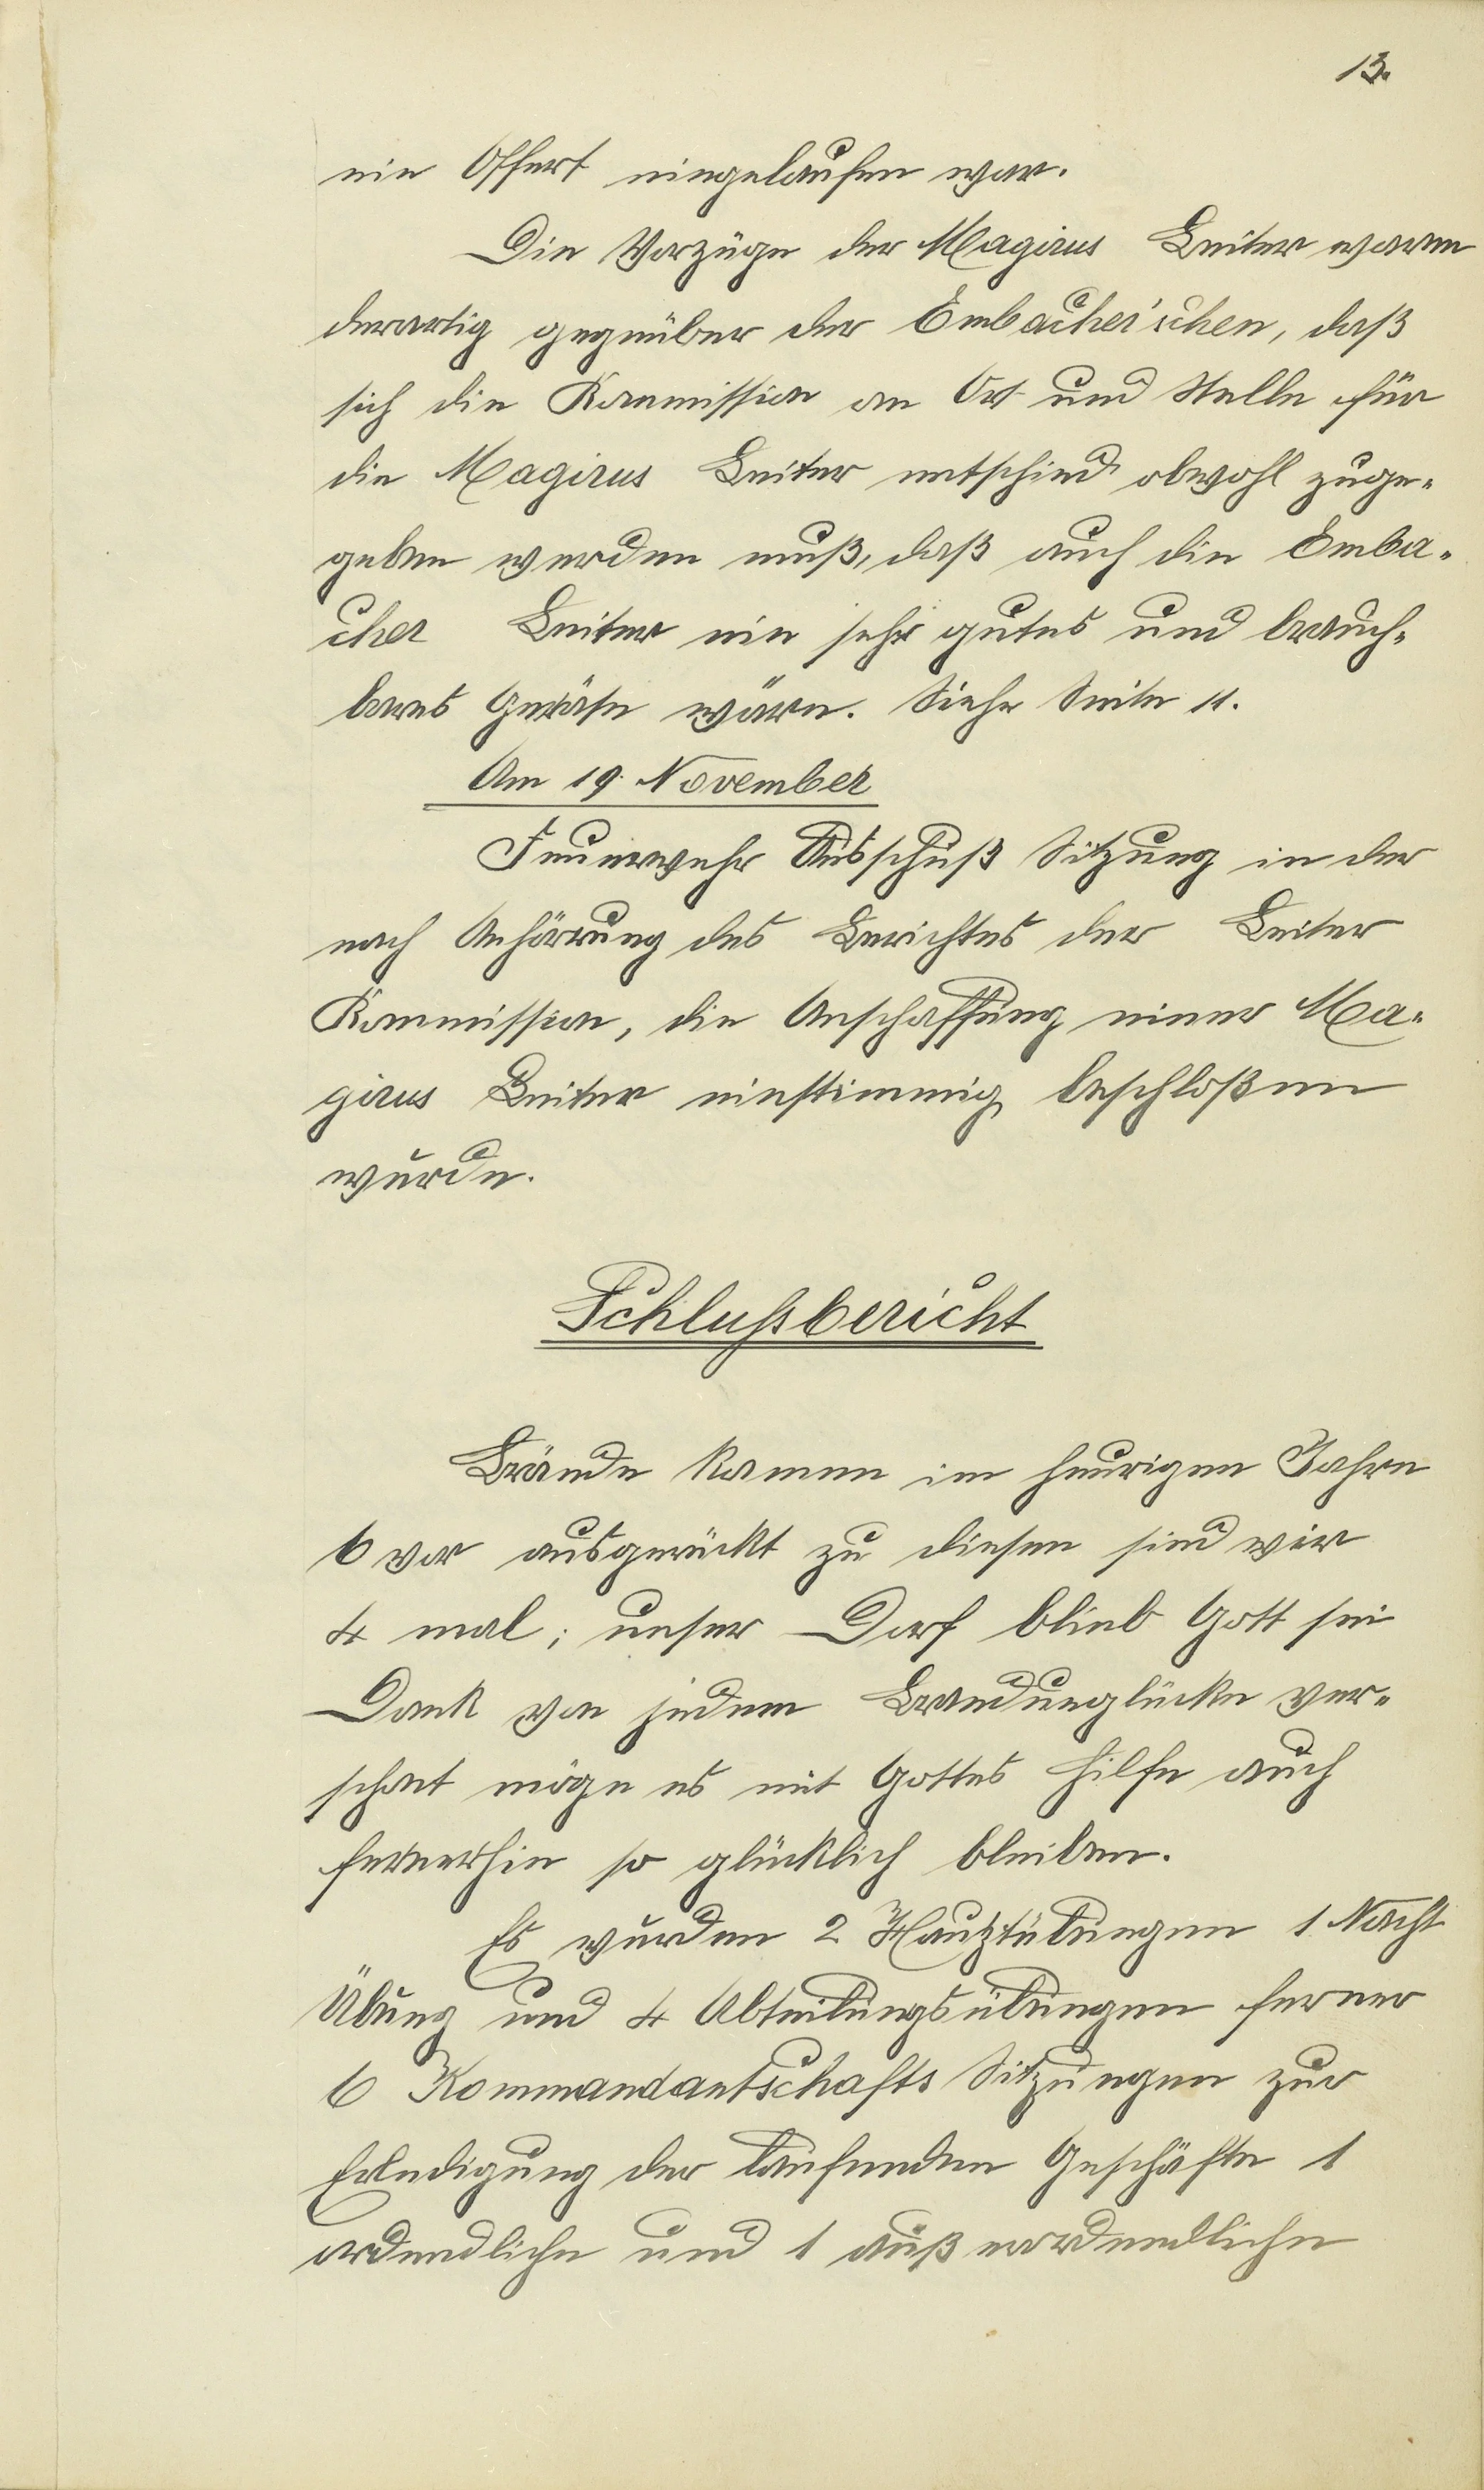 13.
ein Offert eingelaufen war.
Die Vorzüge der Magirus Leiter waren
derartig gegenüber der Embacher'schen, daß
sich die Kommission an Ort und Stelle für
die Magirus Leiter entschied obwohl zuge-
geben werden muß, daß auch die Emba-
cher Leiter ein sehr gutes und brauch-
bares Geräte wäre. Siehe Seite 11.
Am 19. November
Feuerwehr Ausschuß Sitzung in der
nach Anhörrung des Berichtes der Leiter
Kommission, die Anschaffung einer Ma-
girus Leiter einstimmig beschloßen
wurde.
Schlußbericht
Brände kamen im heurigen Jahre
6 vor ausgerückt zu diesen sind wir
4 mal; unser Dorf blieb Gott sei
Dank von jedem Brandunglücke ver-
schont möge es mit Gottes Hilfe auch
fernerhin so glücklich bleiben.
Es wurden 2 Hauptübungen 1 Nacht
Übung und 4 Abteilungsübungen ferner
6 Kommandantschafts Sitzungen zur
Erledigung der laufenden Geschäfte 1
ordendliche und 1 außerordendliche